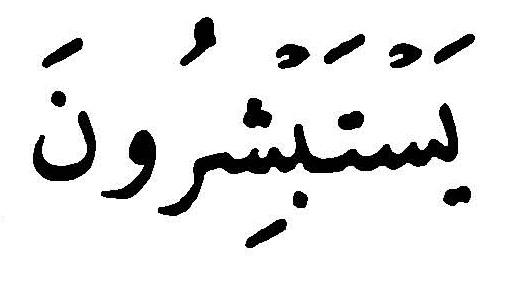 يَسْتَبْشِرُونَ